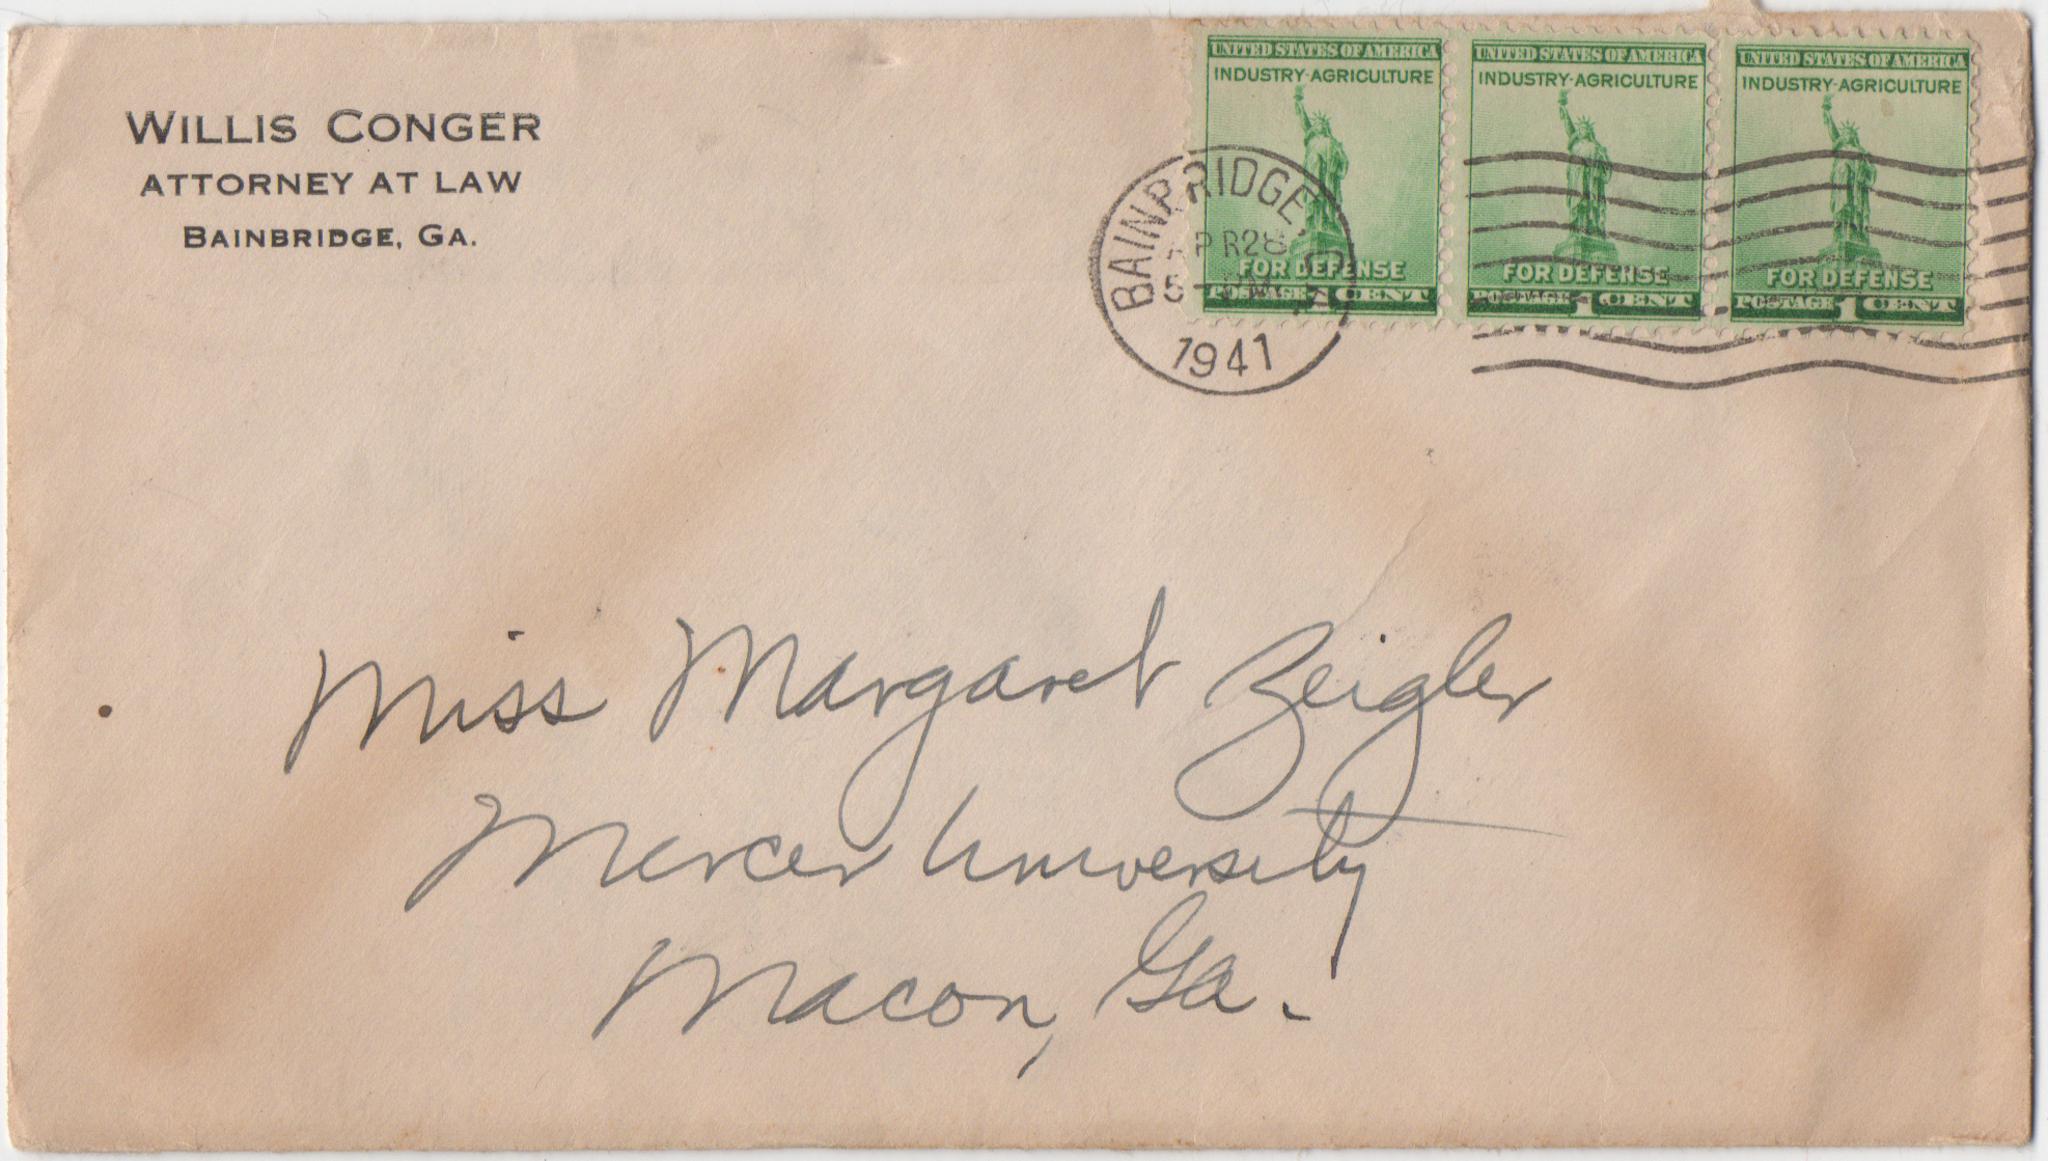 WILLIS CONGER
ATTORNEY AT LAW
BAINBRIDGE, GA.
UNITED STATES OF AMERICA
INDUSTRY-AGRICULTURE
FOR DEFENSE
POSTAGE 1 CENT
UNITED STATES OF AMERICA
INDUSTRY-AGRICULTURE
FOR DEFENSE
POSTAGE 1 CENT
UNITED STATES OF AMERICA
INDUSTRY-AGRICULTURE
FOR DEFENSE
POSTAGE 1 CENT
BAINBRIDGE,
APR 28
5
1941
Miss Margaret Zeigler
Mercer University
Macon, Ga.